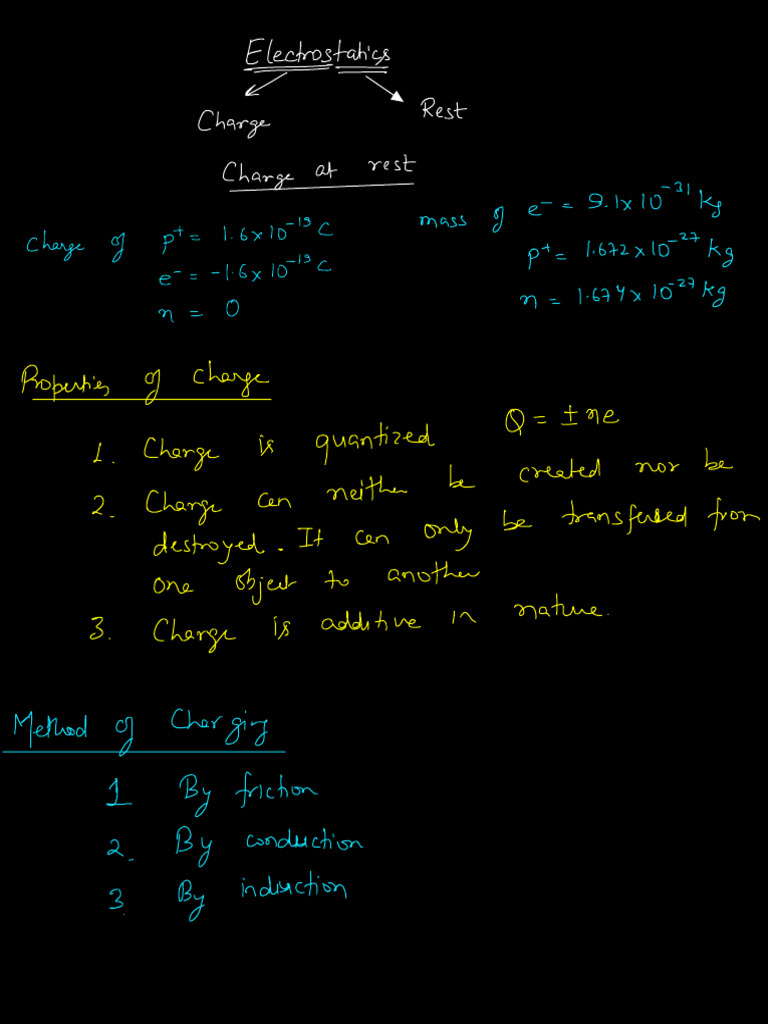 Electrostatics
Charge
Rest
Charge at rest
Charge of p⁺ = 1.6×10⁻¹⁹ C
e⁻ = -1.6×10⁻¹⁹ C
n = 0
mass of e⁻ = 9.1×10⁻³¹ kg
p⁺ = 1.672×10⁻²⁷ kg
n = 1.674×10⁻²⁷ kg
Properties of Charge
1. Charge is quantized Q = ±ne
2. Charge can neither be created nor be
destroyed. It can only be transfered from
one object to another
3. Charge is additive in nature.
Method of Charging
1 By friction
2. By conduction
3. By induction